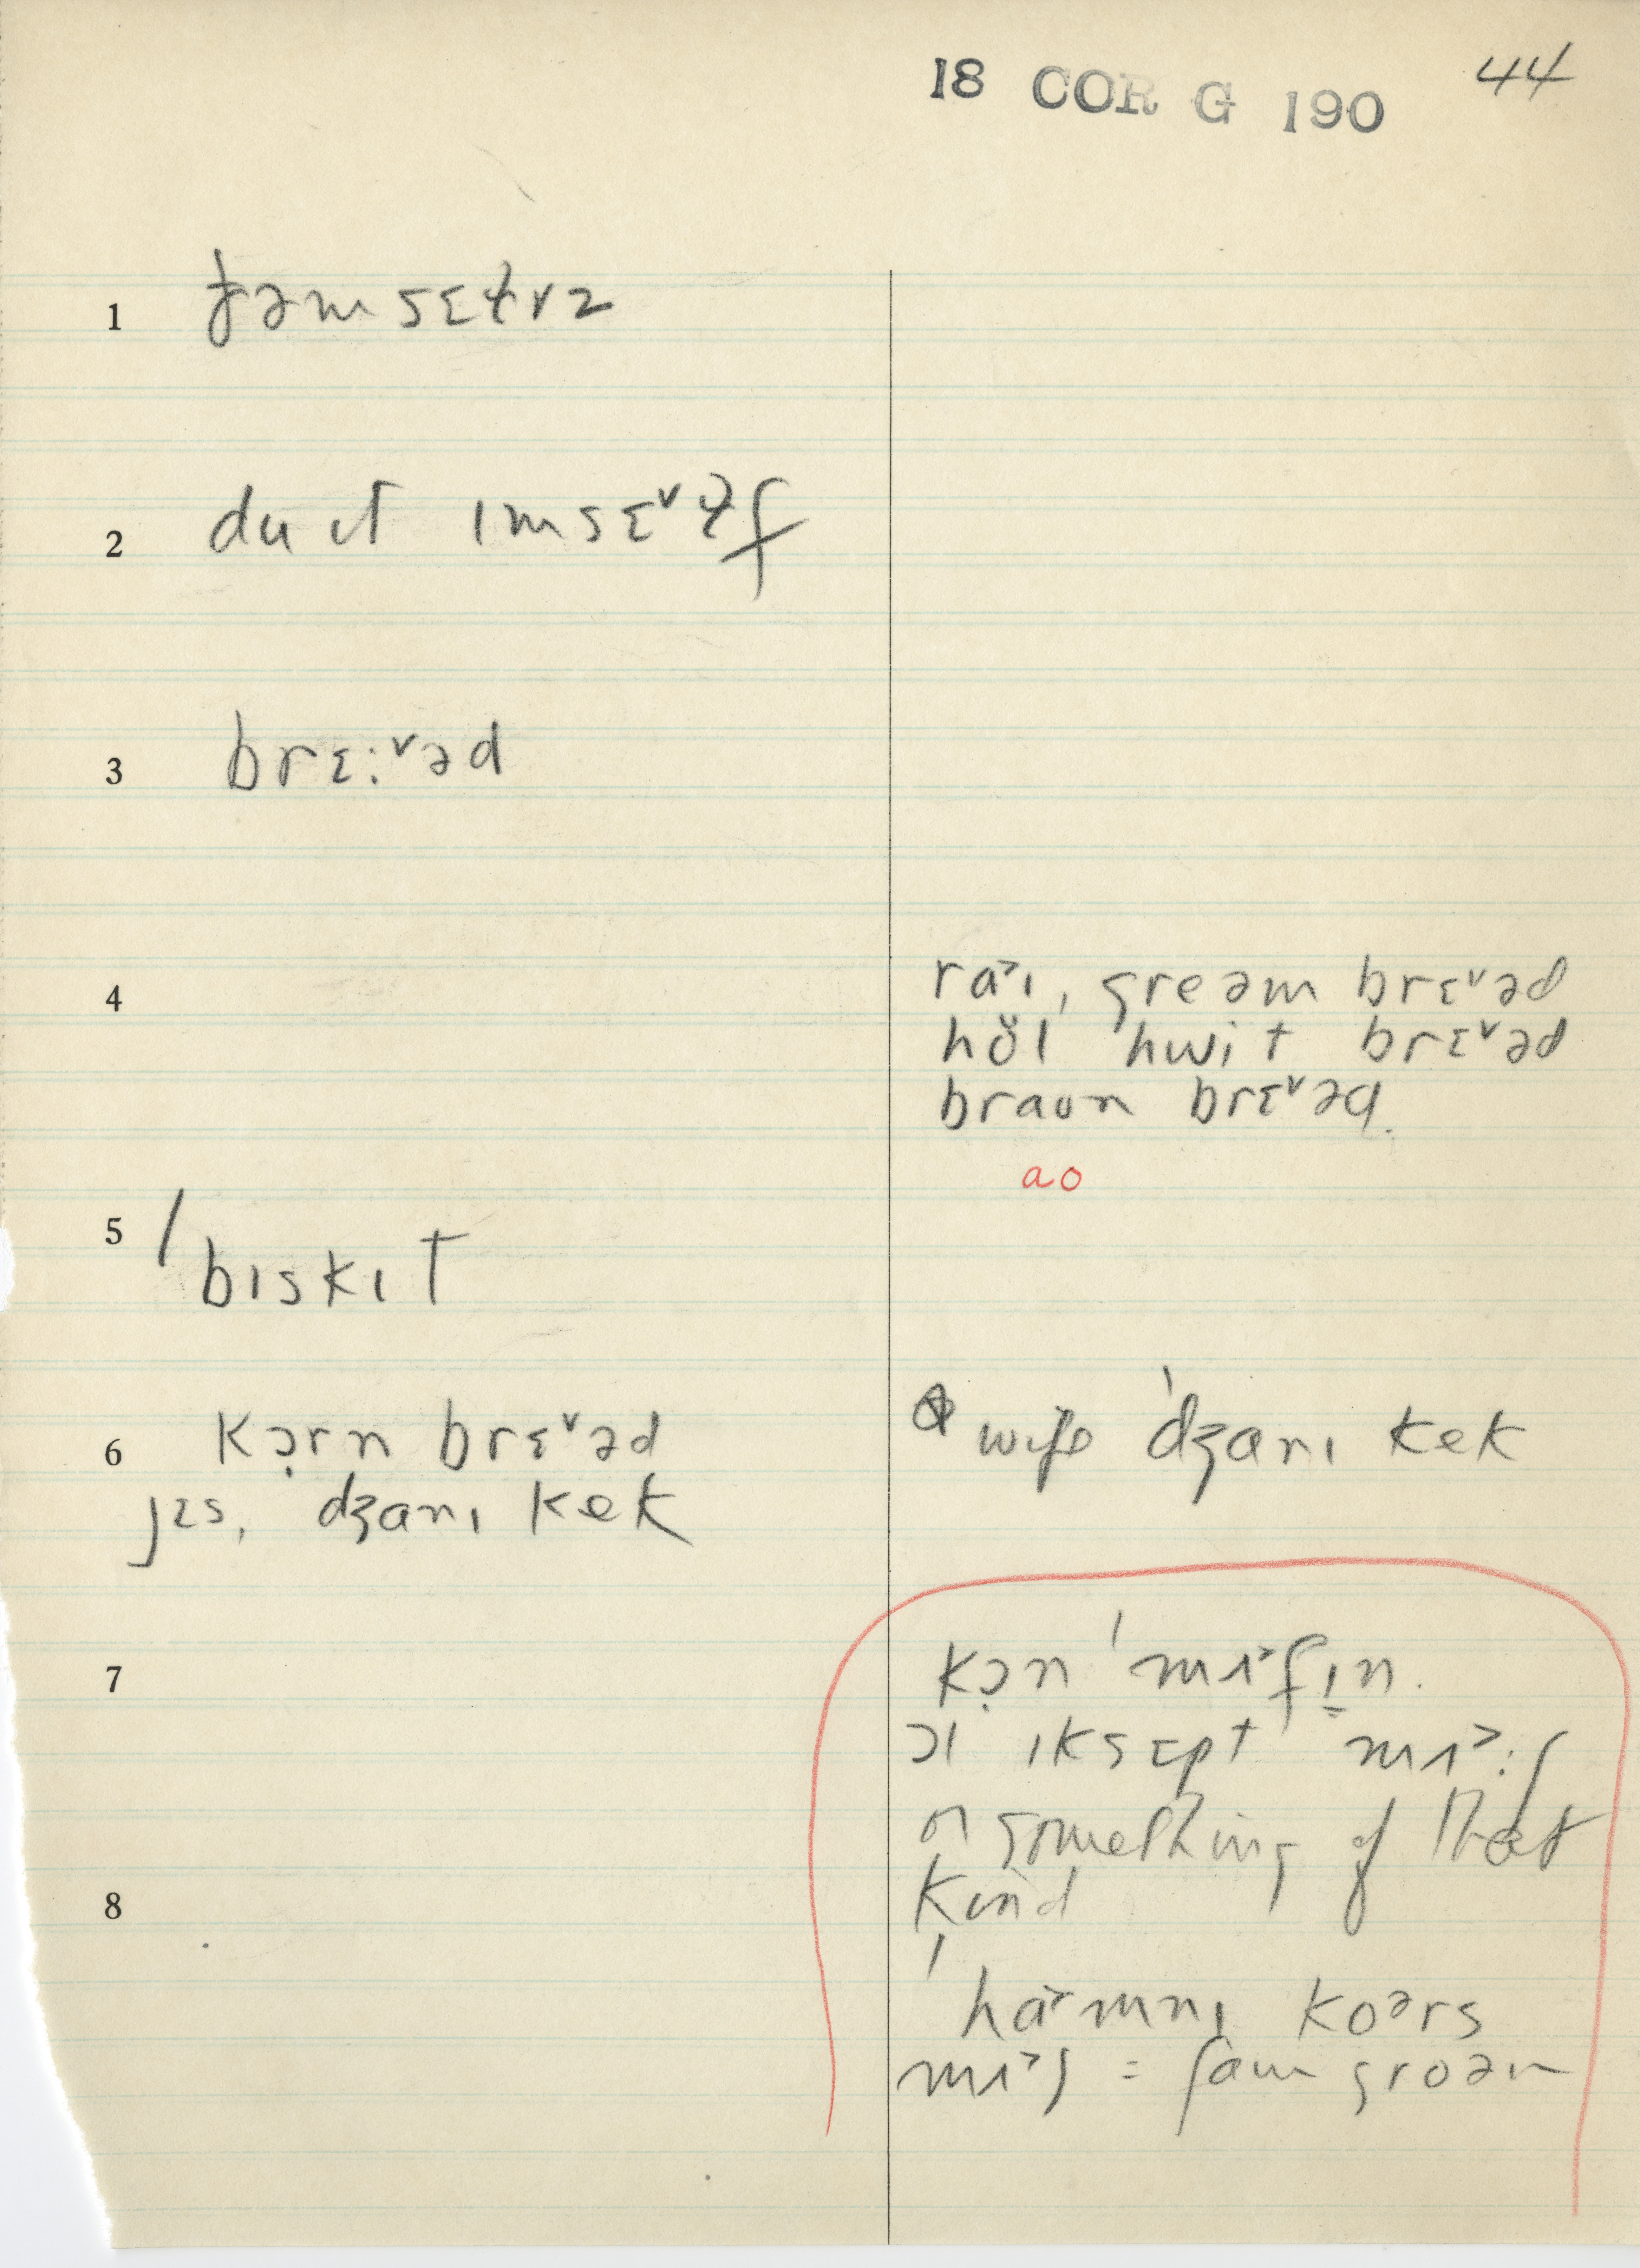 18 COR G 190 44
1 ðəmsɛɫvz
2 du ɪt ɪmsɛ˅ɫf
3 brɛ:˅əd
4 ra˃ɪ, greəm brɛ˅əd
hŏl hwit brɛ˅əd
braʊn brɛ˅əd.
ao
5 / bɪskɪt
6 kɔ̣rn brɛ˅əd
jɛs, dʒanɪ kek
wife ˈdʒanɪ kek
7 kɔ̣n ˈmʌ˃fɪ̠n.
ɔl ɪksɛpt mʌ˃:ʃ
or something of that
8 kind
ˈha˃mnɪ koərs
mʌ˃ʃ = faɪn groən